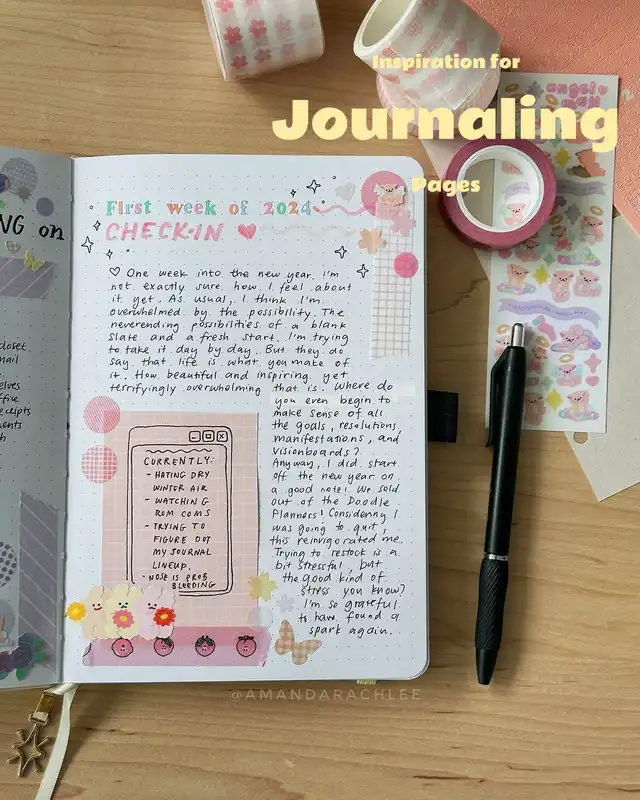 Inspiration for
Journaling
Pages
First week of 2024
CHECK-IN
One week into the new year. I'm
not exactly sure how I feel about
it yet. As usual, I think I'm
overwhelmed by the possibility. The
neverending possibilities of a blank
slate and a fresh start. I'm trying
to take it day by day. But they do
say that life is what you make of
it. How beautiful and inspiring, yet
terrifyingly overwhelming that is. Where do
you even begin to
make sense of all
the goals, resolutions,
manifestations, and
visionboards?
Anyway, I did start
off the new year on
a good note! We sold
out of the Doodle
Planners! Considering I
was going to quit,
this reinvigorated me.
Trying to restock is a
bit stressful, but
the good kind of
stress you know?
I'm so grateful
to have found a
spark again.
CURRENTLY:
- HATING DRY
WINTER AIR
- WATCHING
ROM COMS
- TRYING TO
FIGURE OUT
MY JOURNAL
LINEUP.
- NOSE IS PROB
BLEEDING
NG on
closet
mail
elves
ffice
receipts
ments
@AMANDARACHLEE